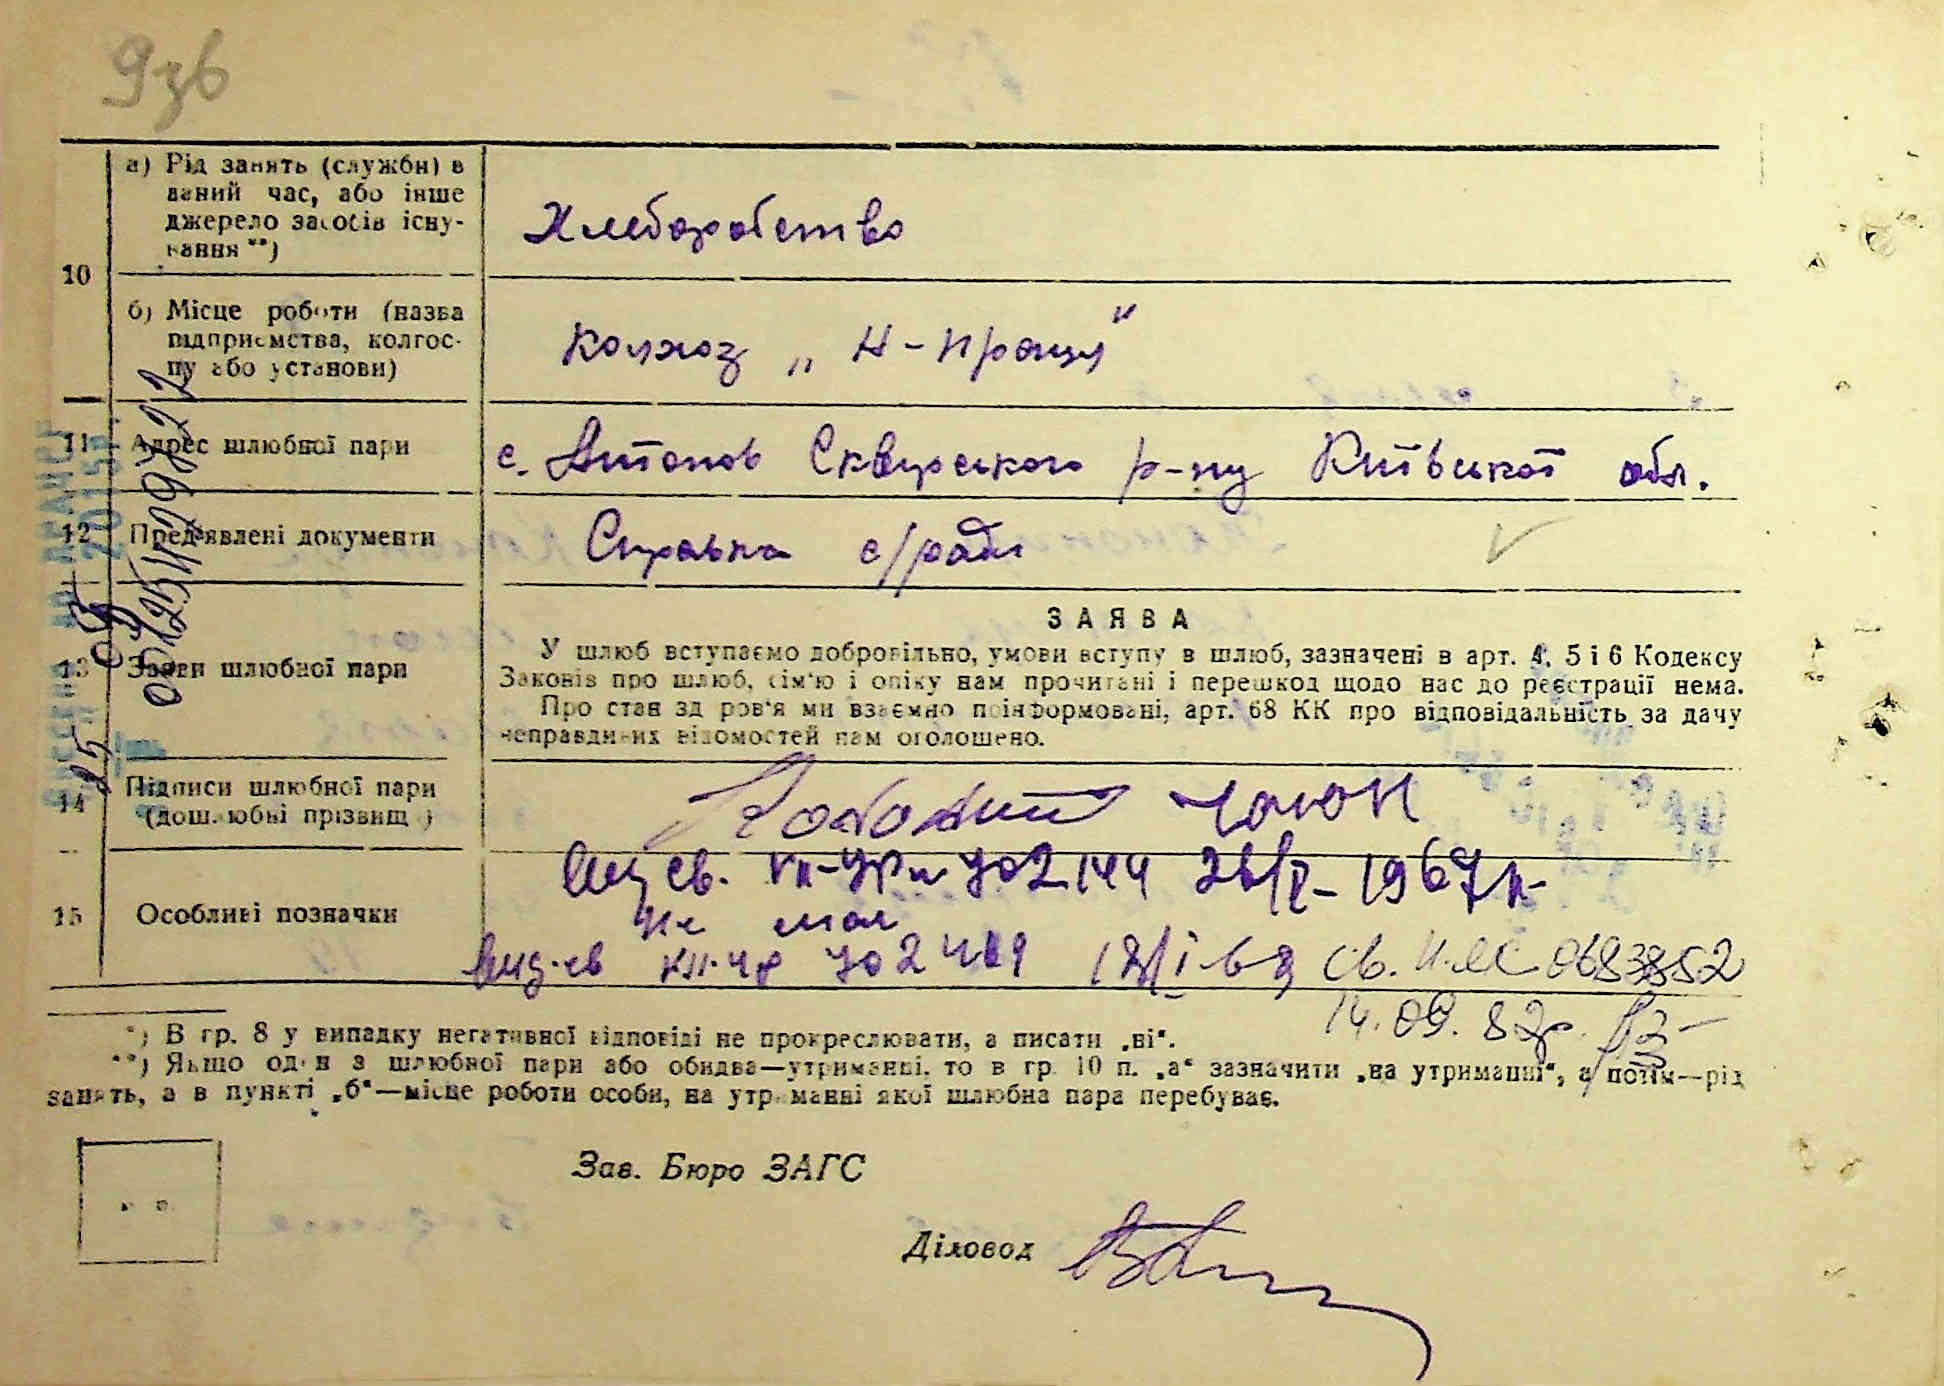 9зв
10
а) Рід занять (служби) в
даний час, або інше
джерело засобів існу-
вання **)
Хлеборобство
б) Місце роботи (назва
підприємства, колгос-
пу або установи)
колхоз „Н-праця"
11 Адрес шлюбної пари
с. Антонов Сквирського р-ну Київської обл.
12 Пред'явлені документи
Справка с/ради
13 Заяви шлюбної пари
ЗАЯВА
У шлюб вступаємо добровільно, умови вступу в шлюб, зазначені в арт. 4, 5 і 6 Кодексу
Законів про шлюб, сім'ю і опіку нам прочитані і перешкод щодо нас до реєстрації нема.
Про стан здоров'я ми взаємно поінформовані, арт. 68 КК про відповідальність за дачу
неправдивих відомостей нам оголошено.
14 Підписи шлюбної пари
(дошлюбні прізвища)
15 Особливі позначки
702144 26/ 1967
702 18/I-68 Св. 0683852
14.09.82р.
*) В гр. 8 у випадку негативної відповіді не прокреслювати, а писати „ні“.
**) Якщо один з шлюбної пари або обидва—утриманці, то в гр. 10 п. „а“ зазначити „на утриманні“, а потім—рід
занять, а в пункті „б“—місце роботи особи, на утриманні якої шлюбна пара перебуває.
Зав. Бюро ЗАГС
Діловод